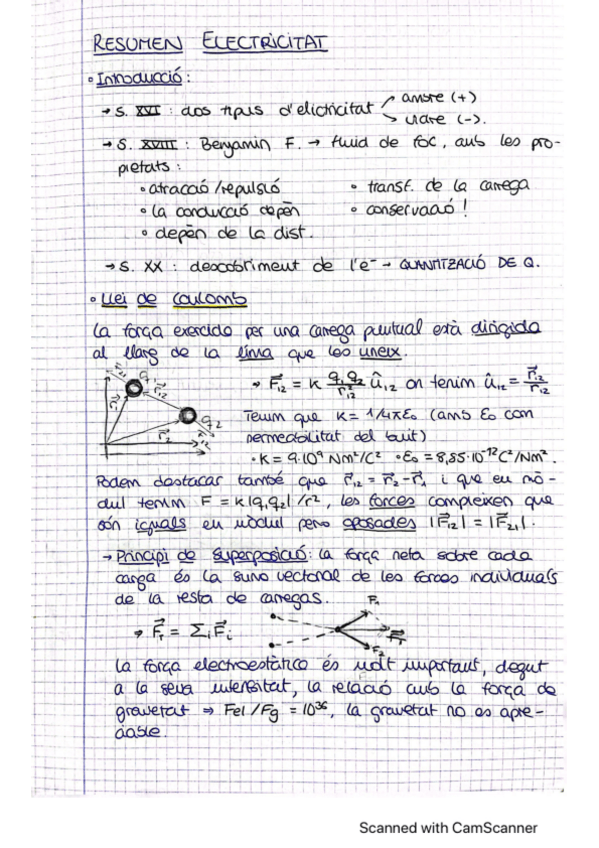 RESUMEN ELECTRICITAT
• Introducció:
→ S. XVI : dos tipus d'elictricitat → ambre (+)
→ vidre (-).
→ S. XVIII : Benjamin F. → fluid de foc, amb les pro-
pietats :
• atracció/repulsió • transf. de la carrega
• la conducció depèn • conservació!
• depèn de la dist.
→ S. XX : descobriment de l'e⁻ → QUANTITZACIÓ DE Q.
• Llei de Coulomb
La força exercida per una carrega puntual està dirigida
al llarg de la línia que les uneix.
→ F⃗₁₂ = K q₁q₂/r₁₂² û₁₂ on tenim û₁₂ = r⃗₁₂/r₁₂
q₁ q₂ r⃗₁ r⃗₂ r⃗₁₂
Tenim que K = 1/4πε₀ (amb ε₀ com
permeabilitat del buit)
• K = 9·10⁹ Nm²/C² • ε₀ = 8,85·10⁻¹² C²/Nm².
Podem destacar també que r⃗₁₂ = r⃗₂ - r⃗₁ i que en mò-
dul tenim F = K|q₁q₂|/r², les forces compleixen que
són iguals en mòdul però oposades |F⃗₁₂| = |F⃗₂₁|.
→ Principi de superposició: la força neta sobre cada
carga és la suma vectorial de les forces individuals
de la resta de carregas.
→ F⃗ᵣ = Σᵢ F⃗ᵢ
F₁ F⃗ᵣ F₂
La força electroestàtica és molt important, degut
a la seva intensitat, la relació amb la força de
gravetat ⇒ Fel/Fg = 10³⁶, la gravetat no es apre-
ciable.
Scanned with CamScanner